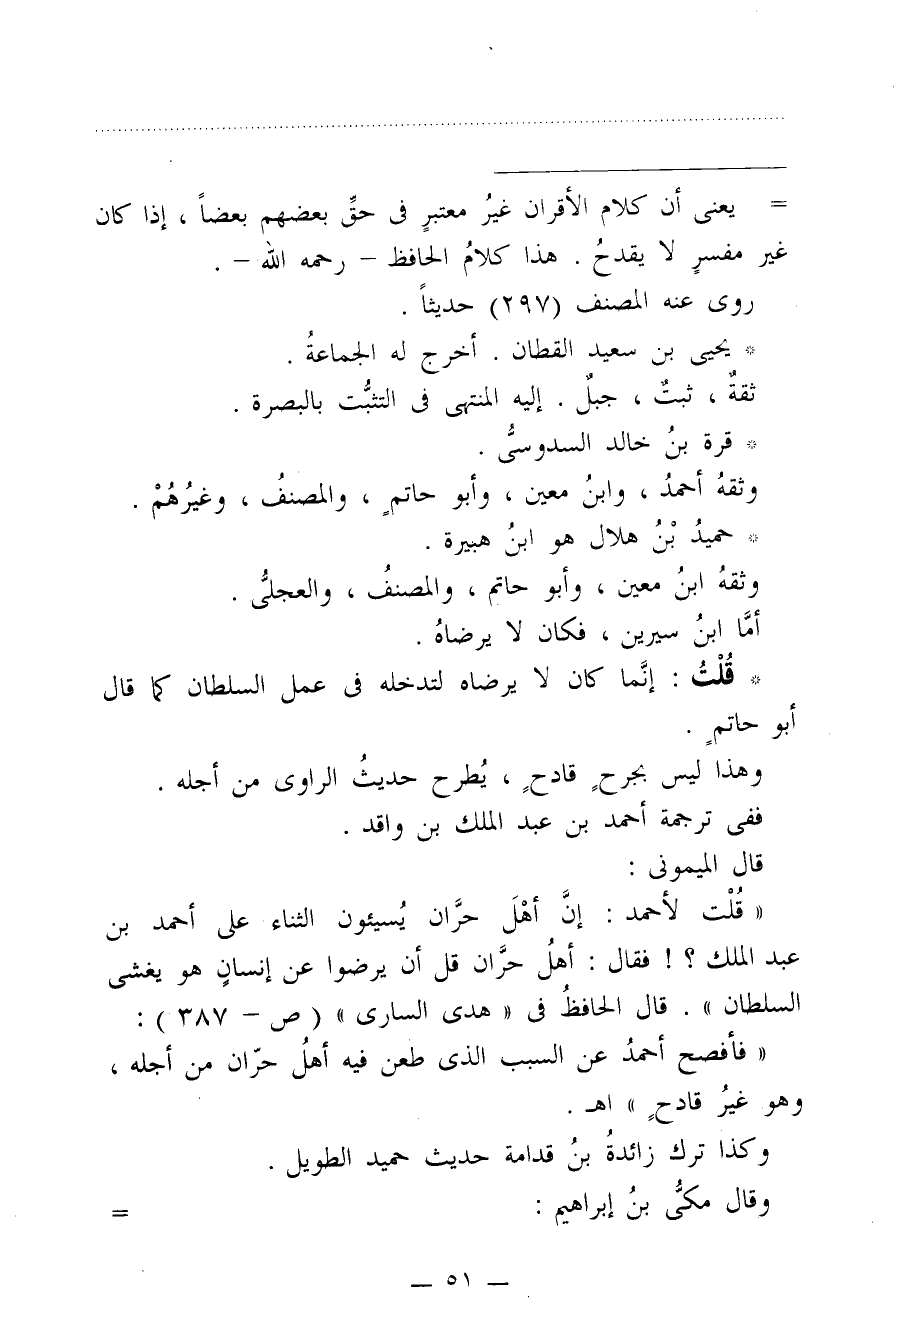 = يعنى أن كلام الأقران غيرُ معتبرٍ فى حقِّ بعضهم بعضاً ، إذا كان
غير مفسرٍ لا يقدحُ . هذا كلامُ الحافظ – رحمه الله – .
روى عنه المصنف (٢٩٧) حديثاً .
* يحيى بن سعيد القطان . أخرج له الجماعةُ .
ثقةٌ ، ثبتٌ ، جبلٌ . إليه المنتهى فى التثبُّت بالبصرة .
* قرة بنُ خالد السدوسىُّ .
وثقهُ أحمدُ ، وابنُ معين ، وأبو حاتمٍ ، والمصنفُ ، وغيرُهُمْ .
* حميدُ بْنُ هلال هو ابنُ هبيرة .
وثقهُ ابنُ معين ، وأبو حاتم ، والمصنفُ ، والعجلىُّ .
أمَّا ابنُ سيرين ، فكان لا يرضاهُ .
* قُلْتُ : إنَّما كان لا يرضاه لتدخله فى عمل السلطان كما قال
أبو حاتمٍ .
وهذا ليس بجرحٍ قادحٍ ، يُطرح حديثُ الراوى من أجله .
ففى ترجمة أحمد بن عبد الملك بن واقد .
قال الميمونى :
« قُلْت لأحمد : إنَّ أهْلَ حرَّان يُسيئون الثناء على أحمد بن
عبد الملك ؟ ! فقال : أهلُ حرَّان قل أن يرضوا عن إنسانٍ هو يغشى
السلطان » . قال الحافظُ فى « هدى السارى » ( ص – ٣٨٧ ) :
« فأفصح أحمدُ عن السبب الذى طعن فيه أهلُ حرّان من أجله ،
وهو غيرُ قادحٍ » اهـ .
وكذا ترك زائدةُ بنُ قدامة حديث حميد الطويل .
وقال مكىُّ بنُ إبراهيم : =
— ٥١ —